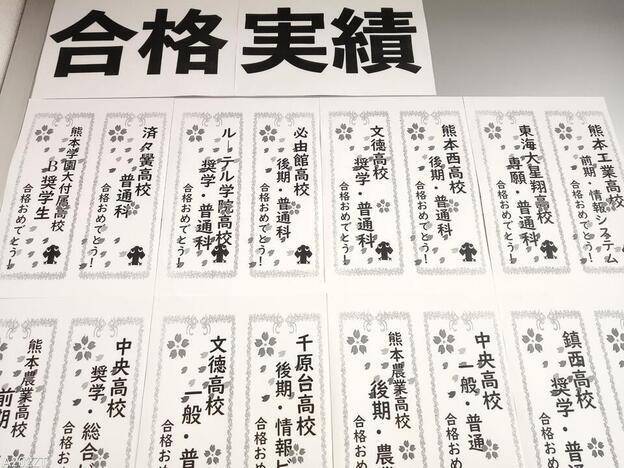 合格実績
熊本工業高校
前期・情報システム
合格おめでとう!
東海大星翔高校
専願・普通科
合格おめでとう!
熊本西高校
後期・普通科
合格おめでとう!
文徳高校
奨学・普通科
合格おめでとう!
必由館高校
後期・普通科
合格おめでとう!
ルーテル学院高校
奨学・普通科
合格おめでとう!
済々黌高校
普通科
合格おめでとう!
熊本学園大付属高校
B奨学生
合格おめでとう!
鎮西高校
奨学・普
合格おめ
中央高校
一般・普通
合格おめ
熊本農業高校
後期・農
千原台高校
後期・情報ビ
合格おめ
文徳高校
一般・普
合格おめ
中央高校
奨学・総合ビ
合格おめで
熊本農業高校
前期